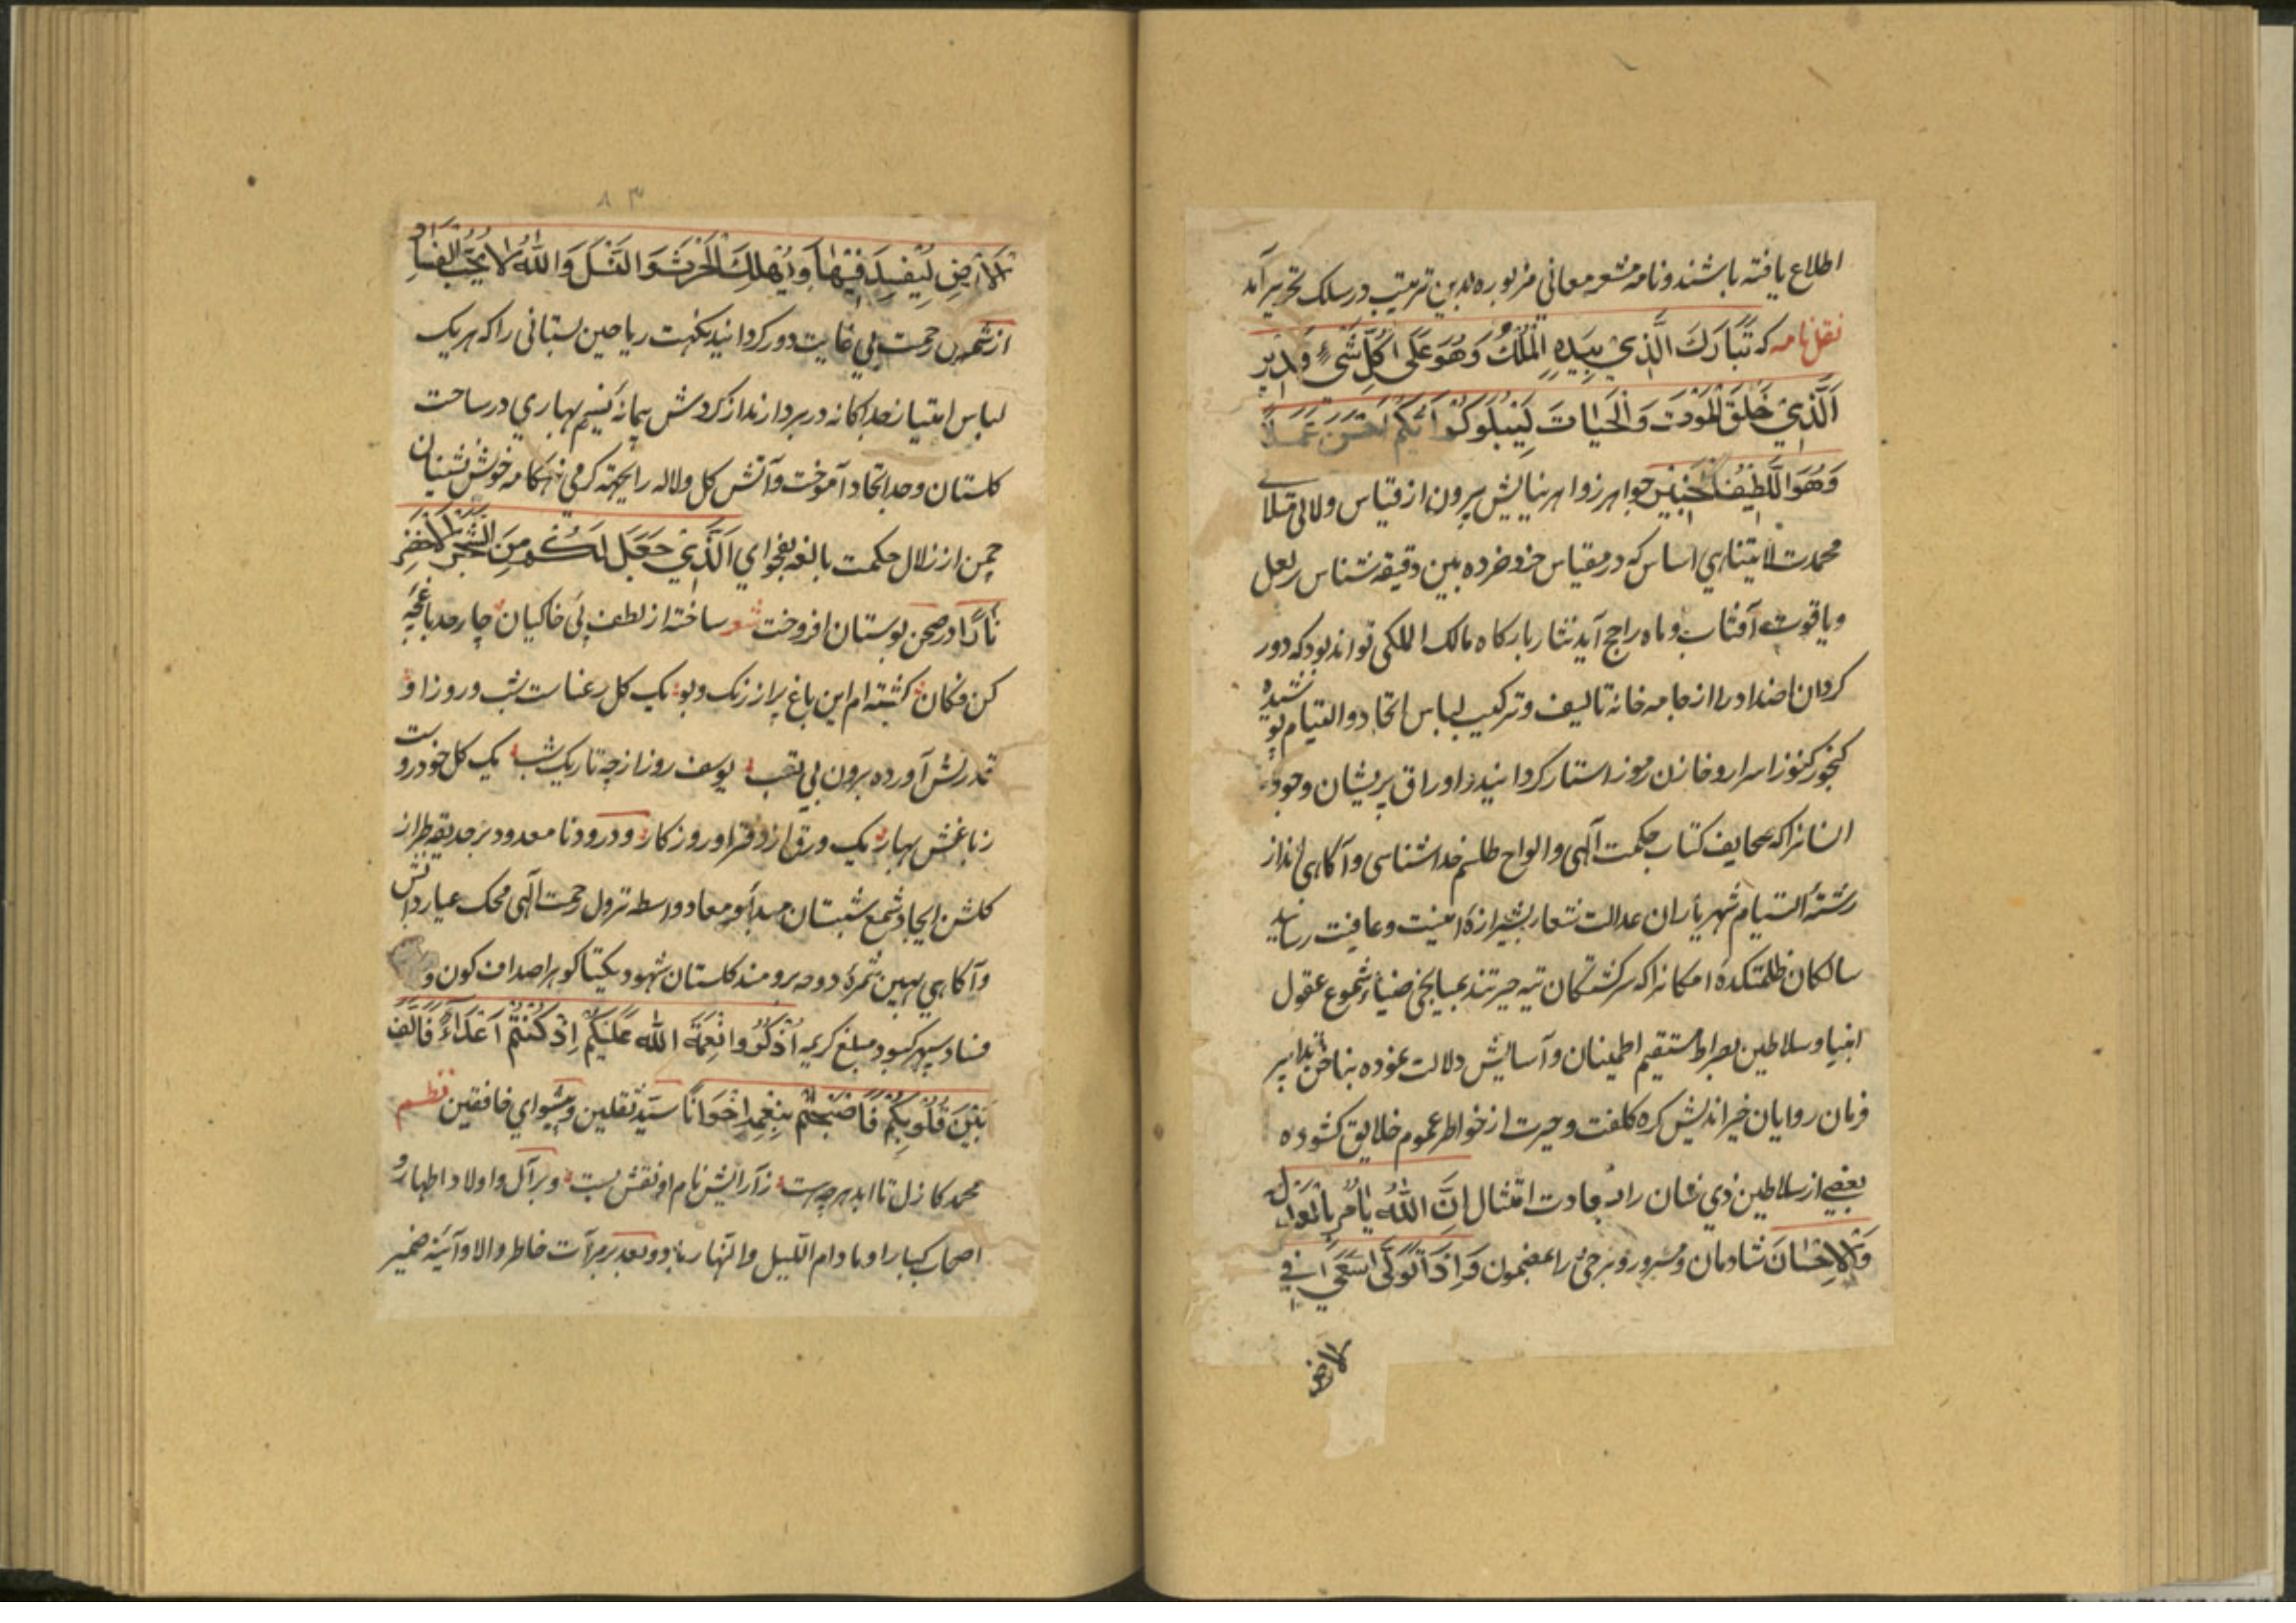 اطلاع یافته باشند و نامه مشعر معاني مزبوره بدین ترتیب در سلک تحریر آمد
نقل نامه که تَبَارَكَ الَّذِي بِيَدِهِ الْمُلْكُ وَهُوَ عَلَى كُلِّ شَيْءٍ قَدِيرٌ
اَلَّذِيْ خَلَقَ الْمَوْتَ وَالْحَيَاتَ لِيَبْلُوَكُمْ اَيُّكُمْ اَحْسَنُ عَمَلًا
وَهُوَ اللَّطِيْفُ الْخَبِيْرُ جواهر زواهر نیایش بیرون از قیاس ولالی متلالی
محمدت لایتناهي اساس که در مقیاس خرد خرده بین دقیقه شناس بر لعل
و یاقوت آفتاب و ماه راجح آید نثار بارکاه مالک الملکی تواند بود که دور
کردان اضداد را از جامه خانه تالیف و ترکیب لباس اتحاد و التیام پوشیده
کنجور کنوز اسرار و خازن رموز استار کردانید و اوراق پریشان وجود
انسانرا که صحایف کتاب حکمت آلهی و الواح طلسم خداشناسی و آکاهی اند از
رشتهٔ التیام شهریاران عدالت شعار بشیرازهٔ امنیت و عافیت رسانید
سالکان ظلمتکدهٔ امکانرا که سرکشتکان تیه حیرتند بمیانجی ضیاء شموع عقول
انبیا و سلاطین بصراط مستقیم اطمینان و آسایش دلالت نموده بناخن تدابیر
فرمان روایان خیر اندیش کره کلفت و حیرت از خواطر عموم خلایق کشوده
بعضي از سلاطین ذي شان را به امتثال اِنَّ اللّٰهَ يَأْمُرُ بِالْعَدْلِ
وَالْاِحْسَانَ شادمان و مسرور و برخی را بمضمون وَاِذَا تَوَلّٰى سَعٰى فِي
الارض
۸۳
الْاَرْضِ لِيُفْسِدَ فِيْهَا وَيُهْلِكَ الْحَرْثَ وَالنَّسْلَ وَاللّٰهُ لَا يُحِبُّ الْفَسَادَ
از رحمت بي غایت دور کردانید نکهت ریاحین بستانی را که هر یک
لباس امتیاز جداکانه در بر دارند از کردش پیمانهٔ نسیم بهاري در ساحت
کلستان وحد اتحاد آموخت و آتش کل و لاله را بجهة کرمي هنکامه خوش نشینان
چمن از زلال حکمت بالغه بفحواي اَلَّذِيْ جَعَلَ لَكُمْ مِنَ الشَّجَرِ الْاَخْضَرِ
نَارًا در صحن بوستان افروخت شعر ساخته از لطف پی خاکیان چار حد باغچهٔ
کن فکان کشته ام این باغ پر از رنک و بو یک کل رعناست شب و روز او
قدرتش آورده برون بي تعب یوسف روز از چه تاریک شب یک کل خودروست
ز باغش بهار یک ورق از دفتر او روزکار و درود نامعدود بر حدیقه طراز
کلشن ایجاد شمع شبستان مبدأ و معاد واسطه نزول رحمت آلهی محک عیار دانش
و آکاهي بهین ثمرهٔ دوحه برومند کلستان شهود یکتا کوهر اصداف کون و
فساد سپهر کبود مبلغ کریمه اُذْكُرُوا نِعْمَةَ اللّٰهِ عَلَيْكُمْ اِذْ كُنْتُمْ اَعْدَاءً فَاَلَّفَ
بَيْنَ قُلُوْبِكُمْ فَاَصْبَحْتُمْ بِنِعْمَتِهِ اِخْوَانًا سیّد ثقلین و پیشواي خافقین نظم
محمد کازل تا ابد هرچه هست ز آرایش نام او نقش بست و بر آل و اولاد اطهار و
اصحاب کبار او مادام اللّیل و النّهار باد و بعد بر مرآت خاطر والا و آئینه ضمیر